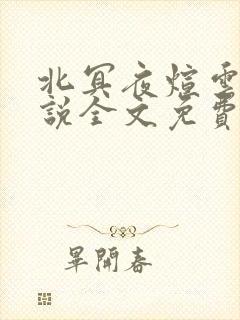 北冥夜煊雲
說全文免費
畢開春